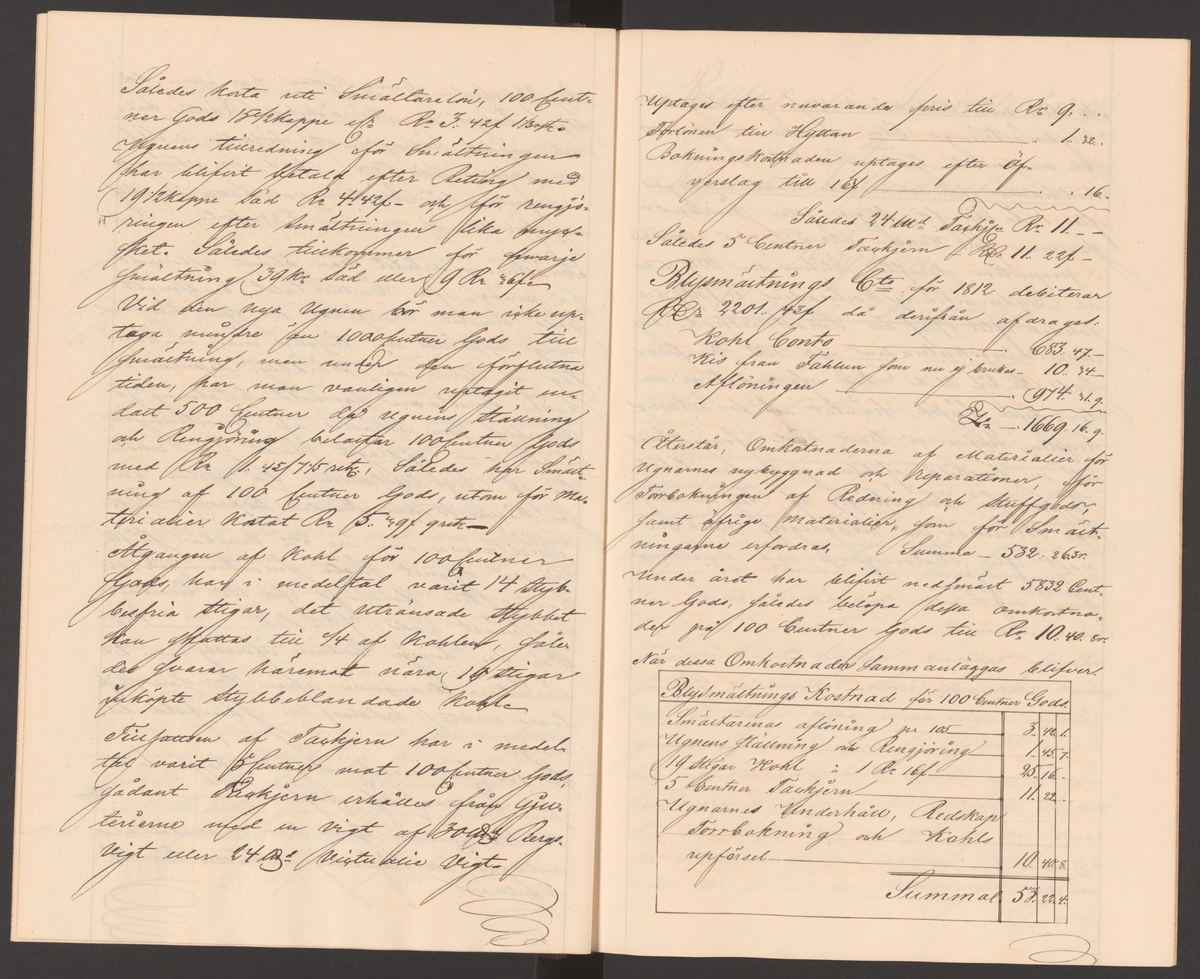 Således kosta uti Smältarelön, 100 Cent-
ner Gods 15 1/2 kappe eft. Rr 3. 42f 1 3/5 rst.
Ugnens tillredning för Smältningen
har blifvit betald efter Beting med
19 1/2 kappe Säd Rr 4. 42f – och för rengjö-
ringen efter smältningen lika myc-
ket. Således tillkommer för hvarje
smältning 39 Kr Säd eller 9 Rr 36f –
Vid den nya Ugnen bör man icke up-
taga mindre än 1000 Centner Gods till
smältning, men under den förflutna
tiden, har man vanligen uptagit en-
dast 500 Centner då ugnens ställning
och Rengjöring belastar 100 Centner Gods
med Rr 1. 45f 7 1/5 rst, Således har Smält-
ning af 100 Centner Gods, utom för Ma-
terialier kostat Rr 5. 39f 9 rst. –
Åtgången af Kohl för 100 Centner
Gods, har i medeltal varit 14 Styb-
besfria stigar, det utränsade stybbet
kan skattas till 1/4 af Kohlen, Såle-
des svarar häremot nära 19 stigar
inköpte stybbeblandade Kohl –
Tillsatsen af Tackjern har i medel-
tal varit 5 Centner mot 100 Centner Gods,
sådant Tackjern erhålles från Gju-
terierne med en vigt af 30 Bergs-
vigt eller 24 Victualie Vigt –
Uptages efter nuvarande pris till Rr 9. . .
Forlönen till Hyttan 1. 32. .
Boknings kostnaden uptages efter Öf-
verslag till 16f . . 16. .
Således 24 Tackjn Rr 11. – –
Således 5 Centner Tackjern Rr 11. 22f –
Blysmältnings Cto för 1812 debiterar
Rr 2201. 43f då derifrån afdrages:
Kohl Conto 683. 47. –
Kis från Fahlun som nu ej brukas – 10. 34 –
Aflöningen 974. 31. 9.
Rr – 1669. 16. 9.
Återstår, Omkostnaderna af Materialier för
Ugnarnes nybyggnad och Reparationer, för
Torrbokningen af Redning och Stuffgods,
samt öfrige materialier, som för Smält-
ningarne erfordras, Summa – 532. 26 3r.
Under året har blifvit nedsmält 5832 Cent-
ner Gods, således belöpa dessa omkostna-
der på 100 Centner Gods till Rr 10. 40. 8r.
När dessa Omkostnader sammanläggas blifver.
Blysmältnings Kostnad för 100 Centner Gods.
Smältarenas aflöning pr 105 3. 42. 1.
Ugnens ställning och Rengjöring 1. 45. 7.
19 Stigar Kohl à 1 Rr 16f 25. 16. –
5 Centner Tackjern 11. 22. .
Ugnarnes Underhåll, Redskap
Torrbokning och Kohls
upförsel 10. 40. 8.
Summa 53. 22. 4.